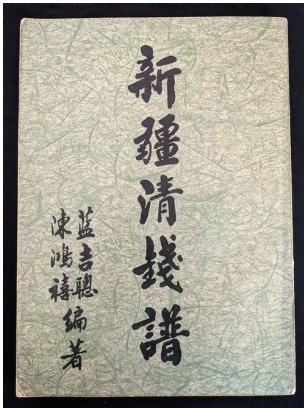 新疆清錢譜
藍吉聰
陳鴻禧
編著